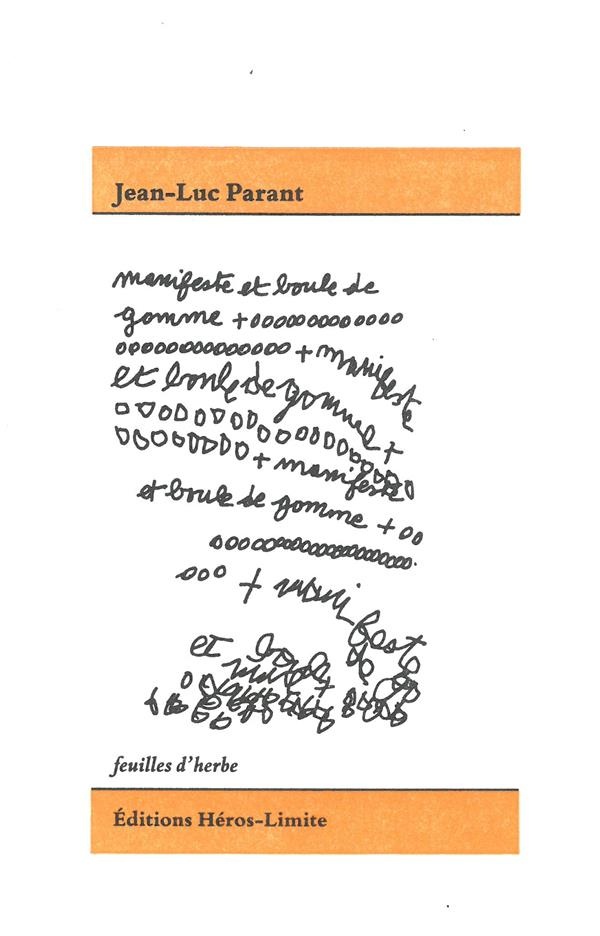 Jean-Luc Parant
manifeste et boule de
gomme +ooooooooooooo
ooooooooooooooo + manifeste
et boule de gomme +
oooooooooooooooooo
oooooooo + manifeste
et boule de gomme + oo
oooooooooooooooooooo
ooo + mani
feste
et boule de
feuilles d'herbe
Éditions Héros-Limite